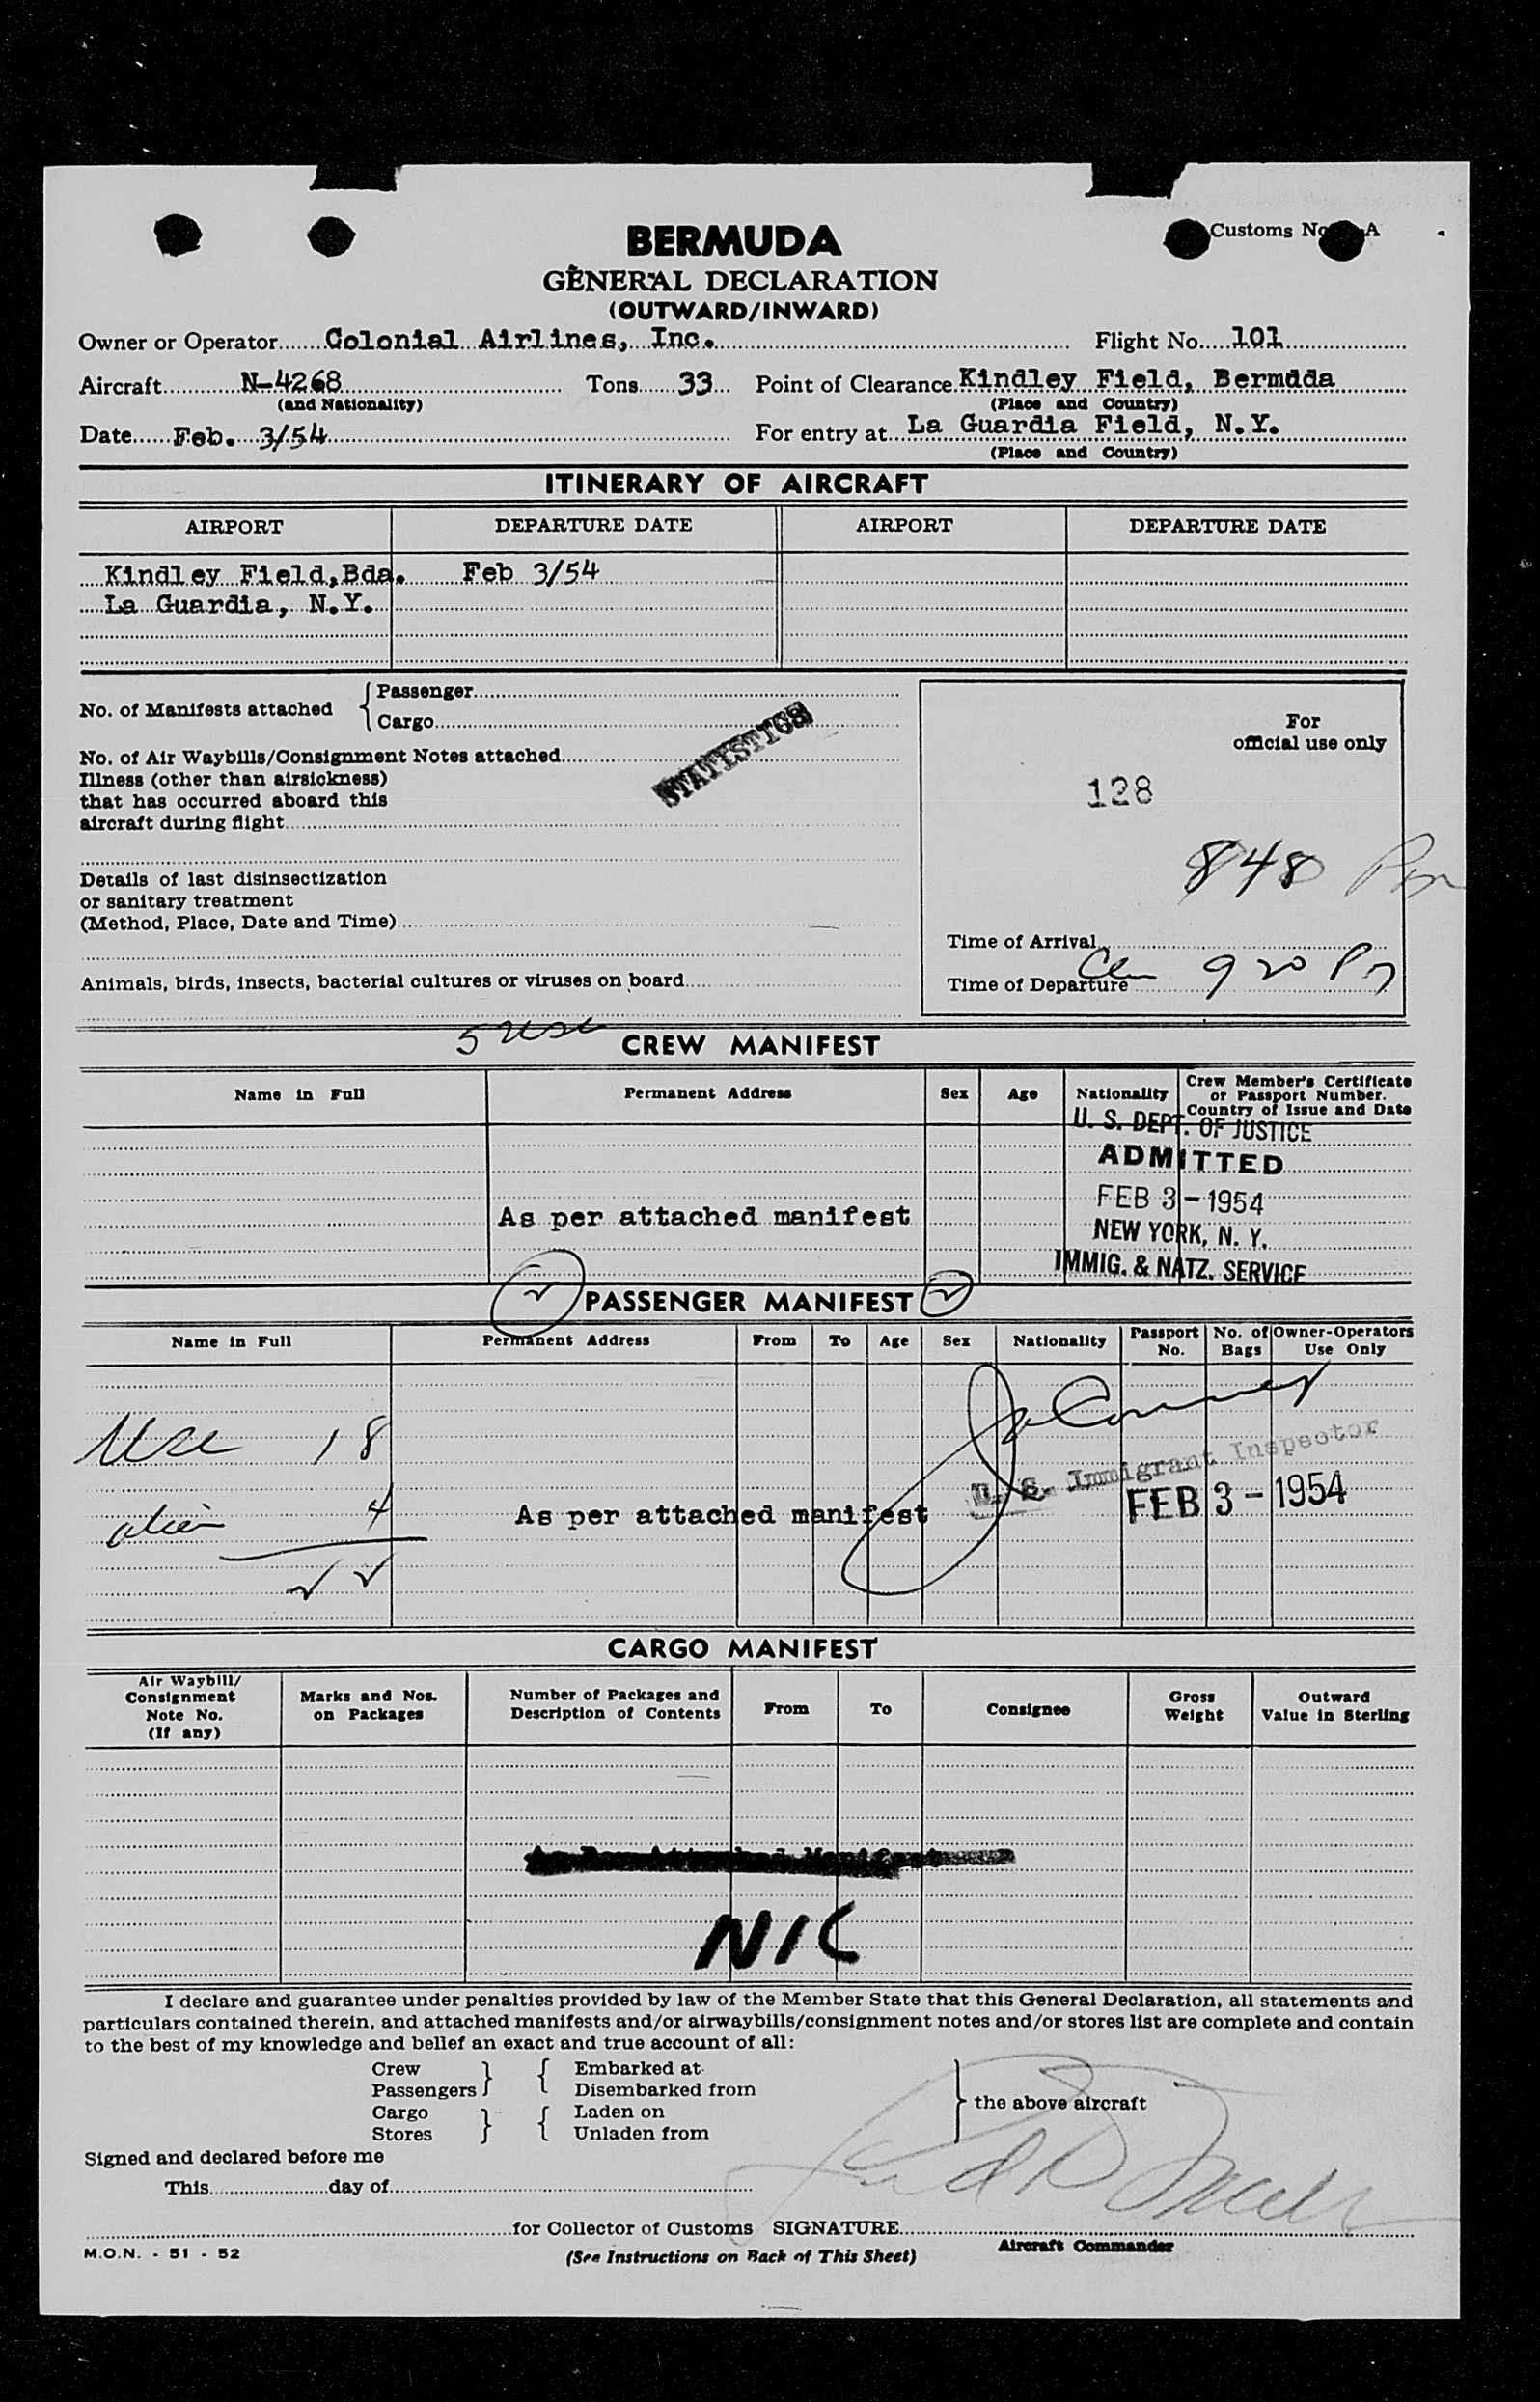 Customs No. A
BERMUDA
GENERAL DECLARATION
(OUTWARD/INWARD)
Owner or Operator Colonial Airlines, Inc. Flight No. 101
Aircraft N-4268 Tons 33 Point of Clearance Kindley Field, Bermdda
(and Nationality) (Place and Country)
Date Feb. 3/54 For entry at La Guardia Field, N.Y.
(Place and Country)
ITINERARY OF AIRCRAFT
AIRPORT DEPARTURE DATE AIRPORT DEPARTURE DATE
Kindley Field, Bda. Feb 3/54
La Guardia, N.Y.
No. of Manifests attached { Passenger
Cargo
For
official use only
No. of Air Waybills/Consignment Notes attached
STATISTICS
Illness (other than airsickness)
that has occurred aboard this
aircraft during flight
128
848 Pm
Details of last disinsectization
or sanitary treatment
(Method, Place, Date and Time)
Time of Arrival
Animals, birds, insects, bacterial cultures or viruses on board
Time of Departure 920 P
5 usc
CREW MANIFEST
Name in Full Permanent Address Sex Age Nationality Crew Member's Certificate
or Passport Number.
Country of Issue and Date
U. S. DEPT. OF JUSTICE
ADMITTED
FEB 3 - 1954
As per attached manifest
NEW YORK, N. Y.
IMMIG. & NATZ. SERVICE
PASSENGER MANIFEST
Name in Full Permanent Address From To Age Sex Nationality Passport No. No. of Bags Owner-Operators Use Only
usc 18
U. S. Immigrant Inspector
FEB 3 - 1954
alien 4
As per attached manifest
CARGO MANIFEST
Air Waybill/ Consignment Note No. (If any) Marks and Nos. on Packages Number of Packages and Description of Contents From To Consignee Gross Weight Outward Value in Sterling
NIC
I declare and guarantee under penalties provided by law of the Member State that this General Declaration, all statements and
particulars contained therein, and attached manifests and/or airwaybills/consignment notes and/or stores list are complete and contain
to the best of my knowledge and belief an exact and true account of all:
Crew } { Embarked at
Passengers Disembarked from
} the above aircraft
Cargo } { Laden on
Stores Unladen from
Signed and declared before me
This day of
for Collector of Customs SIGNATURE
Aircraft Commander
M.O.N. - 51 - 52
(See Instructions on Back of This Sheet)